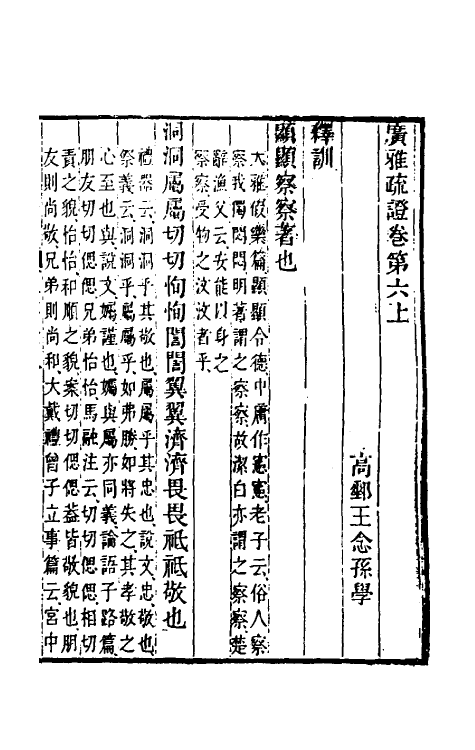 廣雅疏證卷第六上
高郵王念孫學
釋訓
顯顯察察著也
大雅假樂篇顯顯令德中庸作憲憲老子云俗人察
察我獨悶悶明著謂之察察故潔白亦謂之察察楚
辭漁父云安能以身之
察察受物之汶汶者乎
洞洞屬屬切切恂恂誾誾翼翼濟濟畏畏祗祗敬也
禮器云洞洞乎其敬也屬屬乎其忠也說文忠敬也
祭義云洞洞乎屬屬乎如弗勝如將失之其孝敬之
心至也與說文孎謹也孎與屬亦同義論語子路篇
朋友切切偲偲兄弟怡怡馬融注云切切偲偲相切
責之貌怡怡和順之貌案切切偲偲葢皆敬貌也朋
友則尚敬兄弟則尚和大戴禮曾子立事篇云宮中